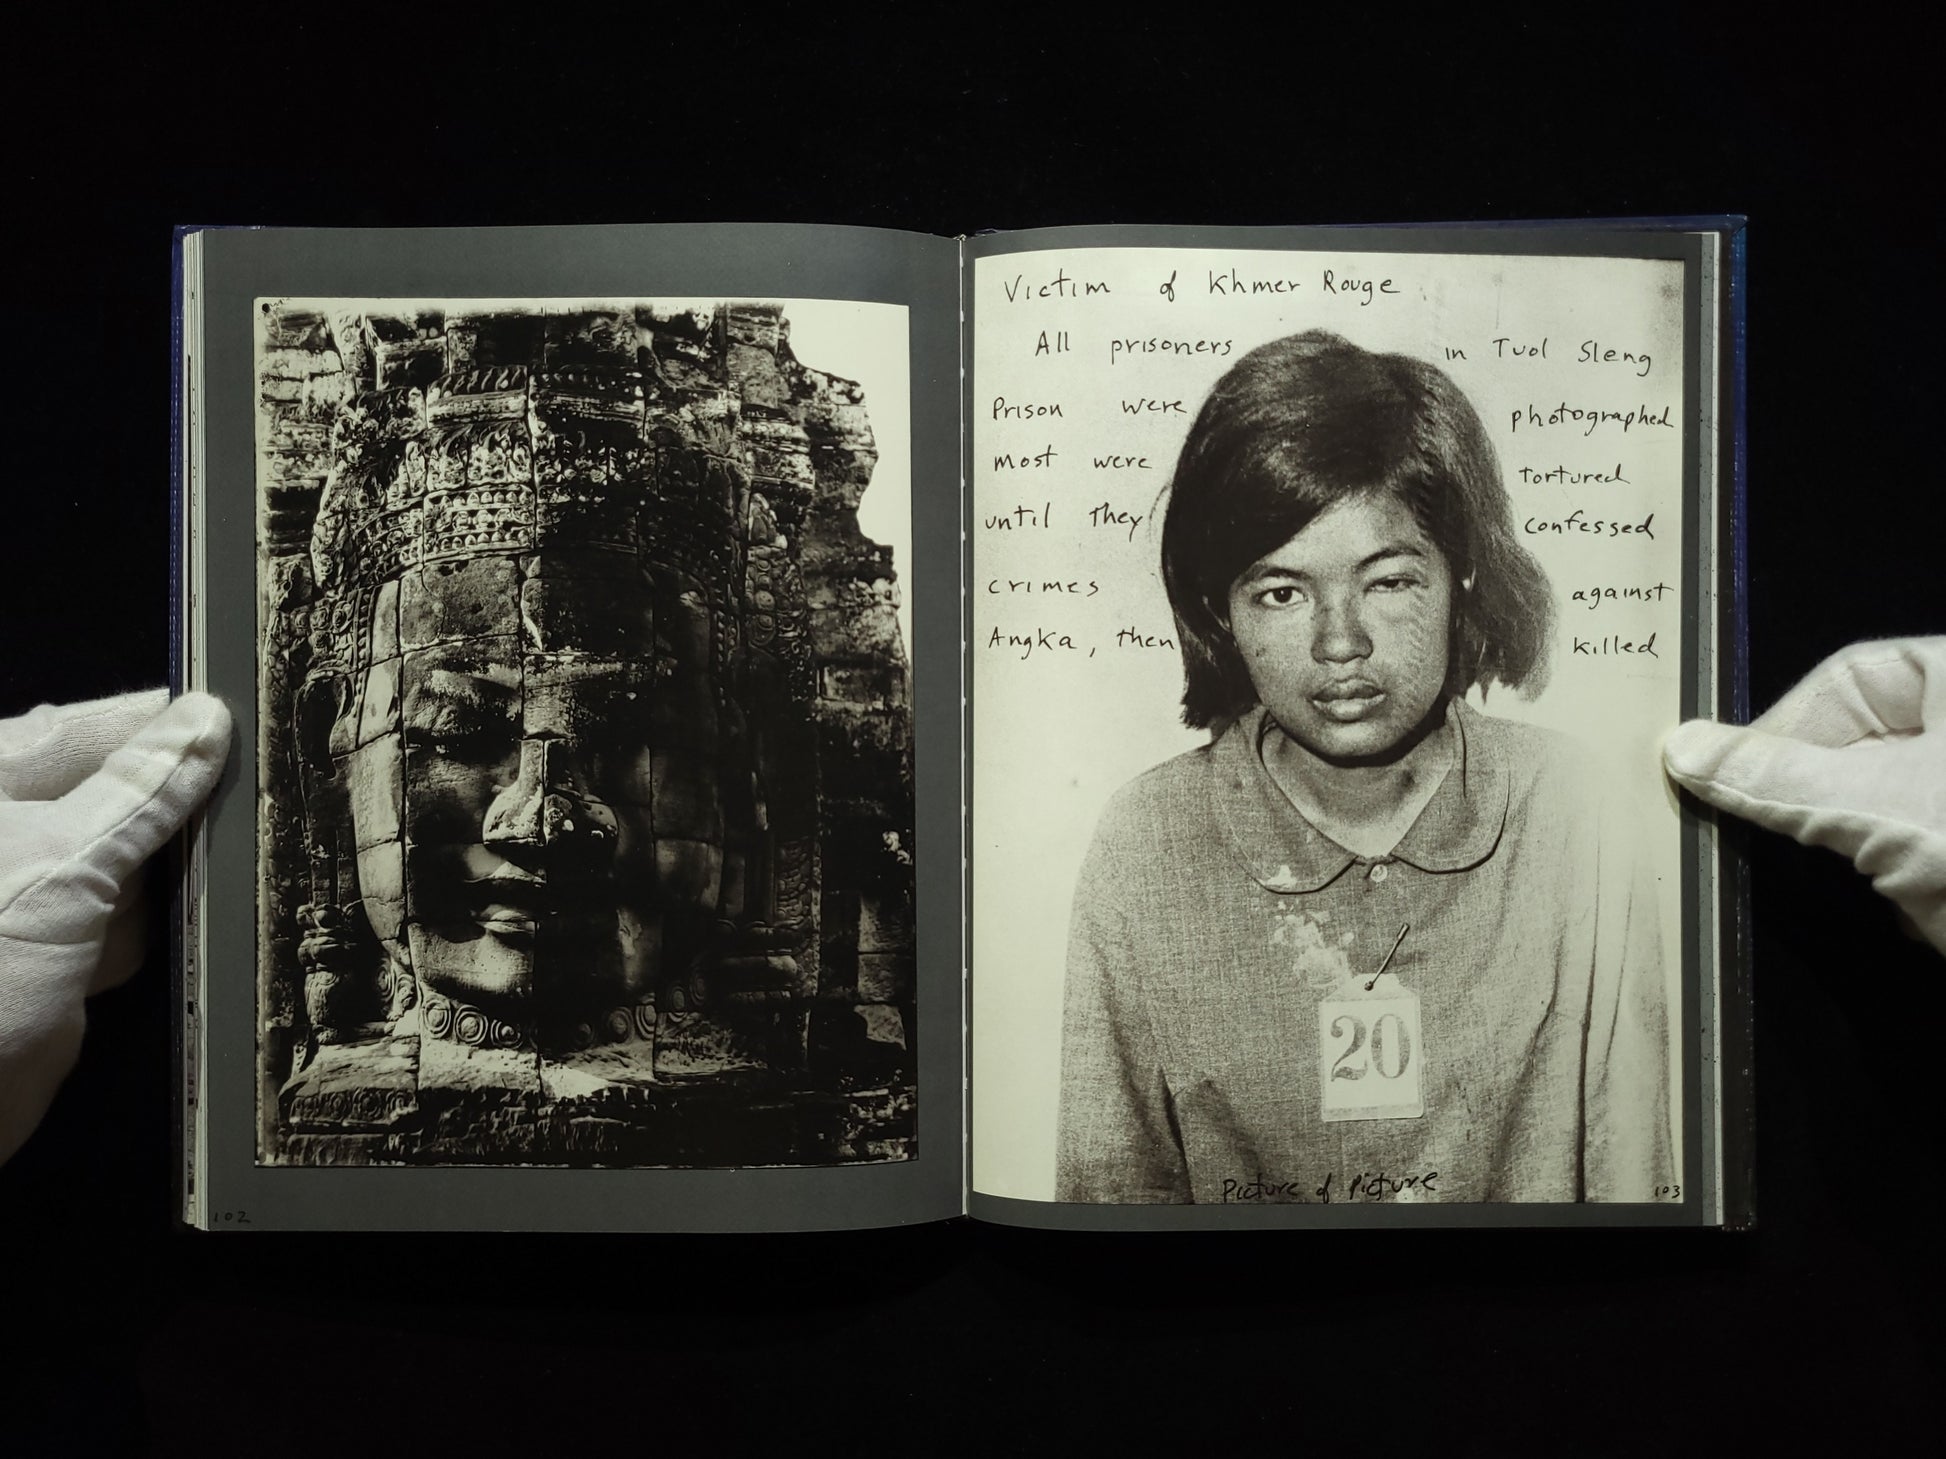 Victim of Khmer Rouge
All prisoners in Tuol Sleng
Prison were photographed
most were tortured
until they confessed
crimes against
Angka, then killed
20
Picture of Picture
102
103